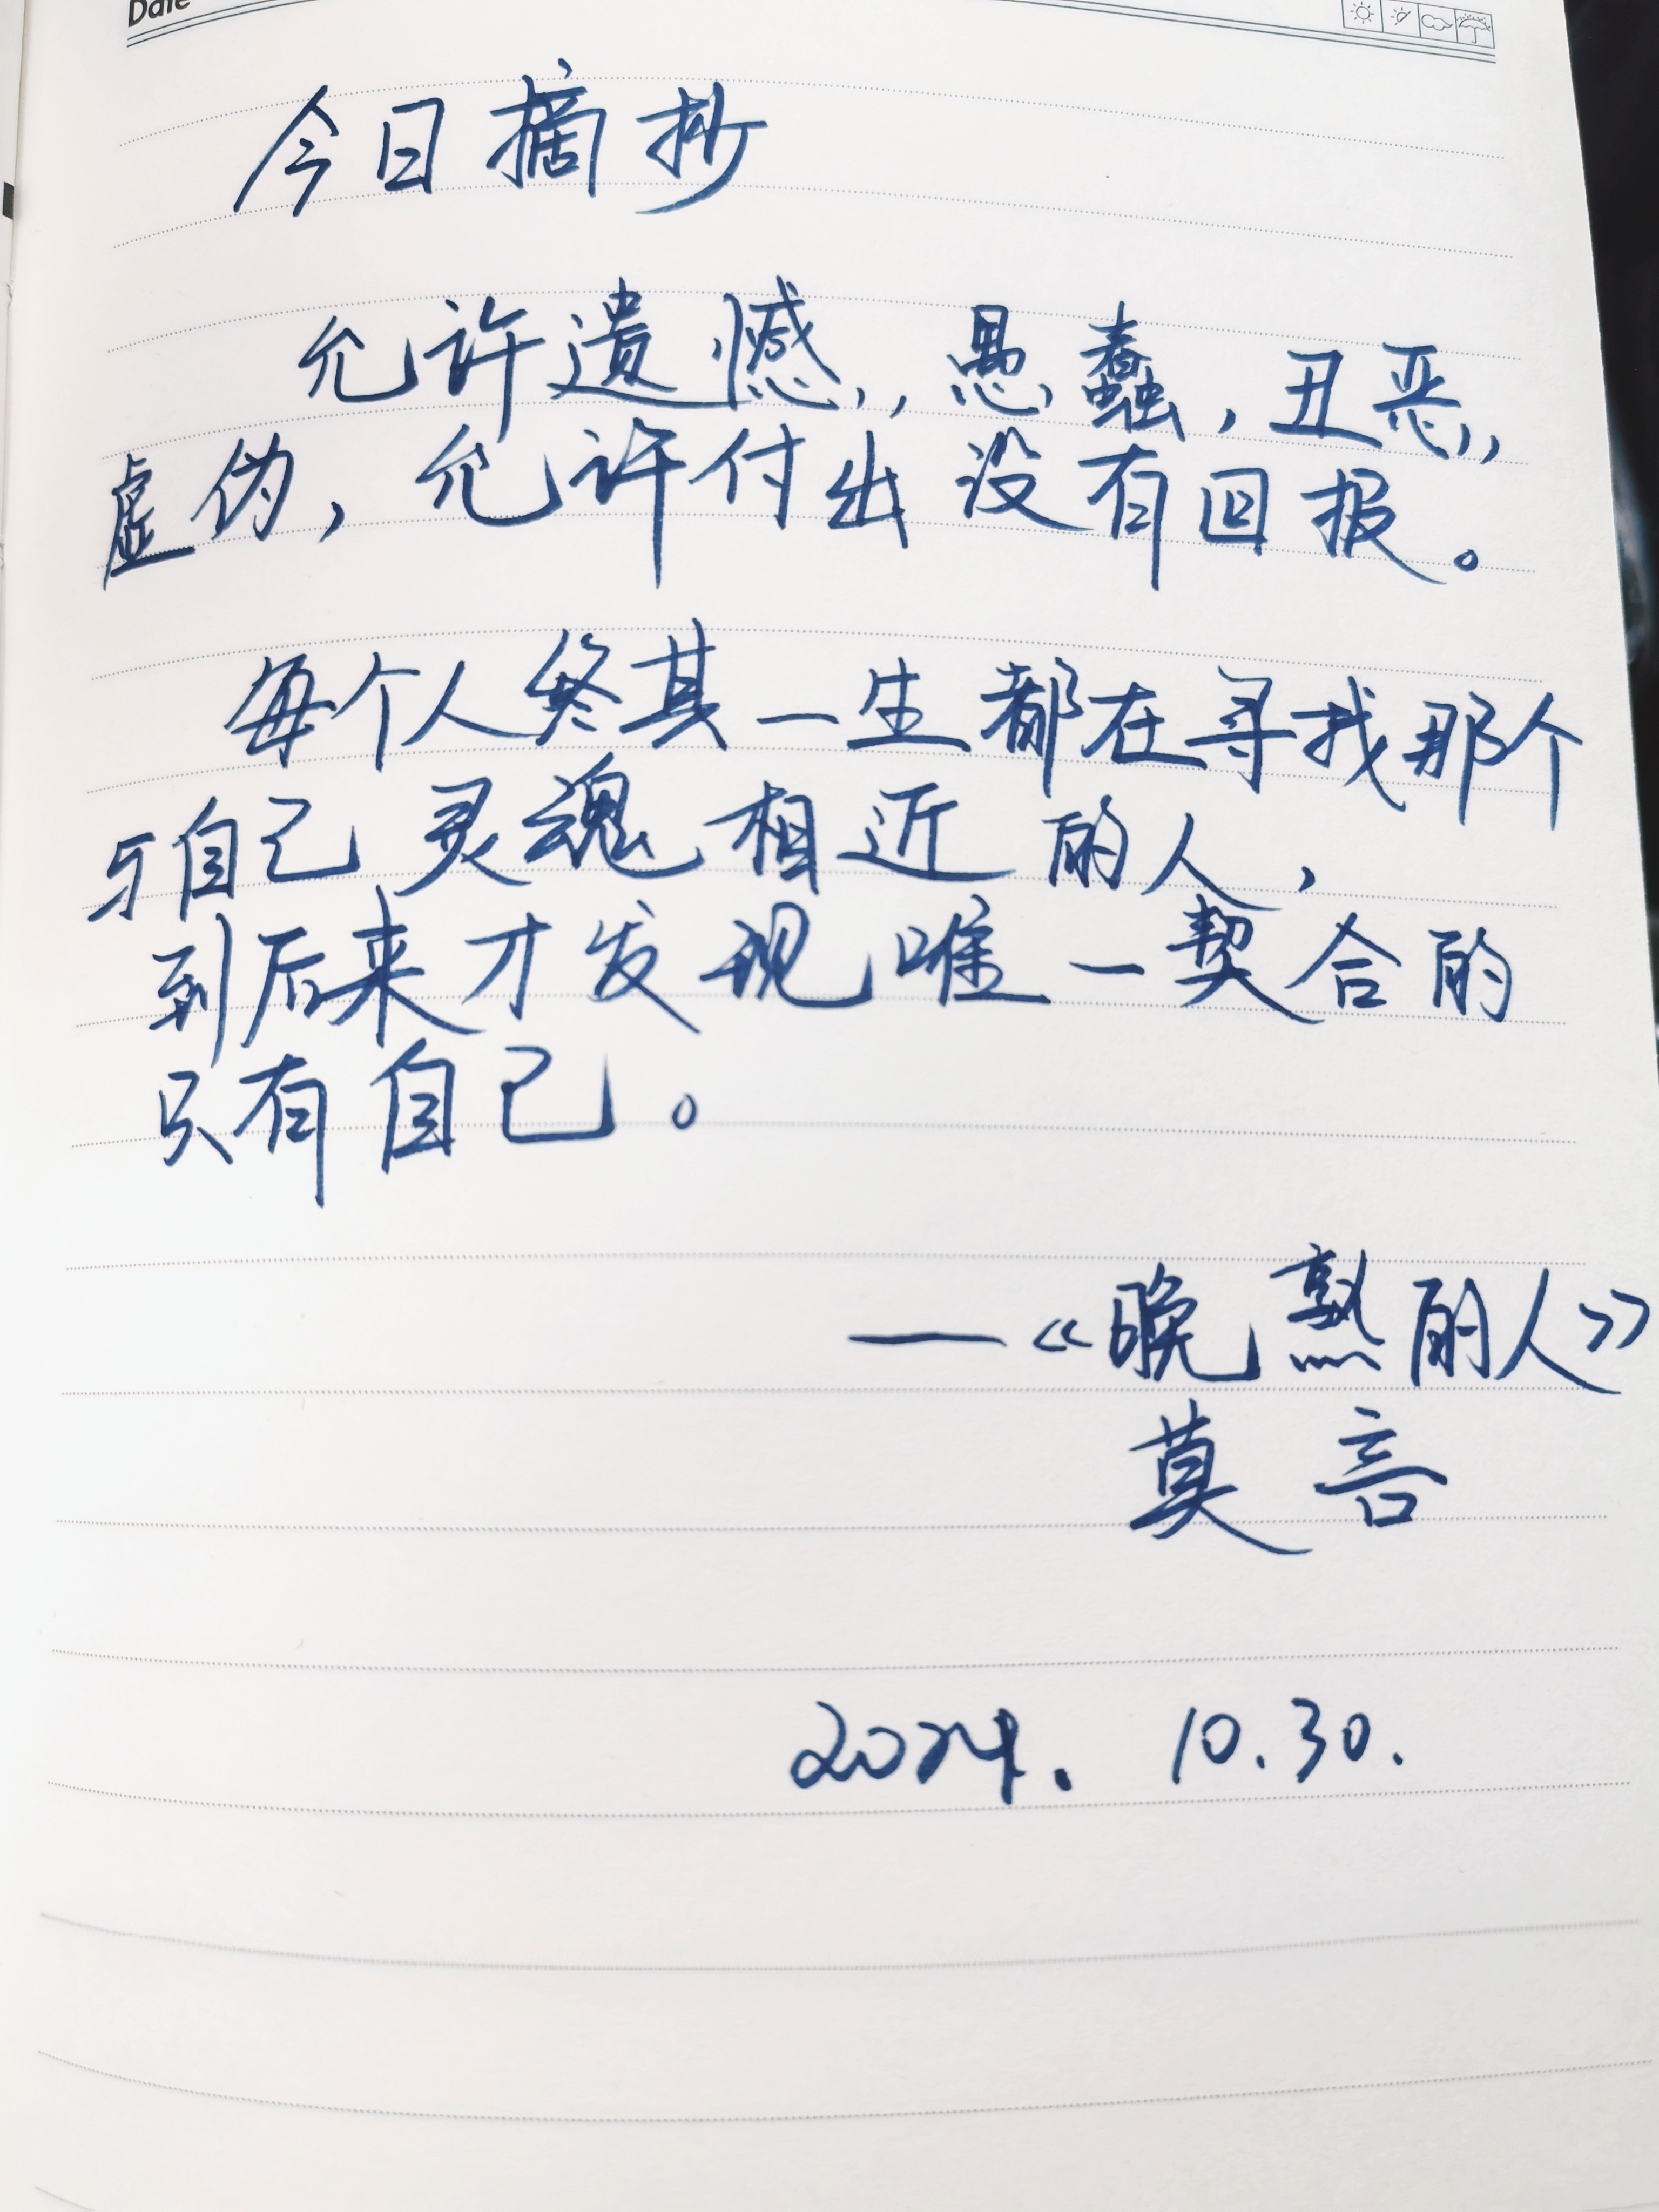 Date
今日摘抄
允许遗憾,，愚蠢，丑恶,，
虚伪，允许付出没有回报。
每个人终其一生都在寻找那个
与自己灵魂相近的人，
到后来才发现唯一契合的
只有自己。
—《晚熟的人》
莫言
2024. 10.30.